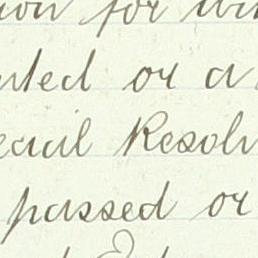 ion for win
nted or a
ecial Resolu
passed or